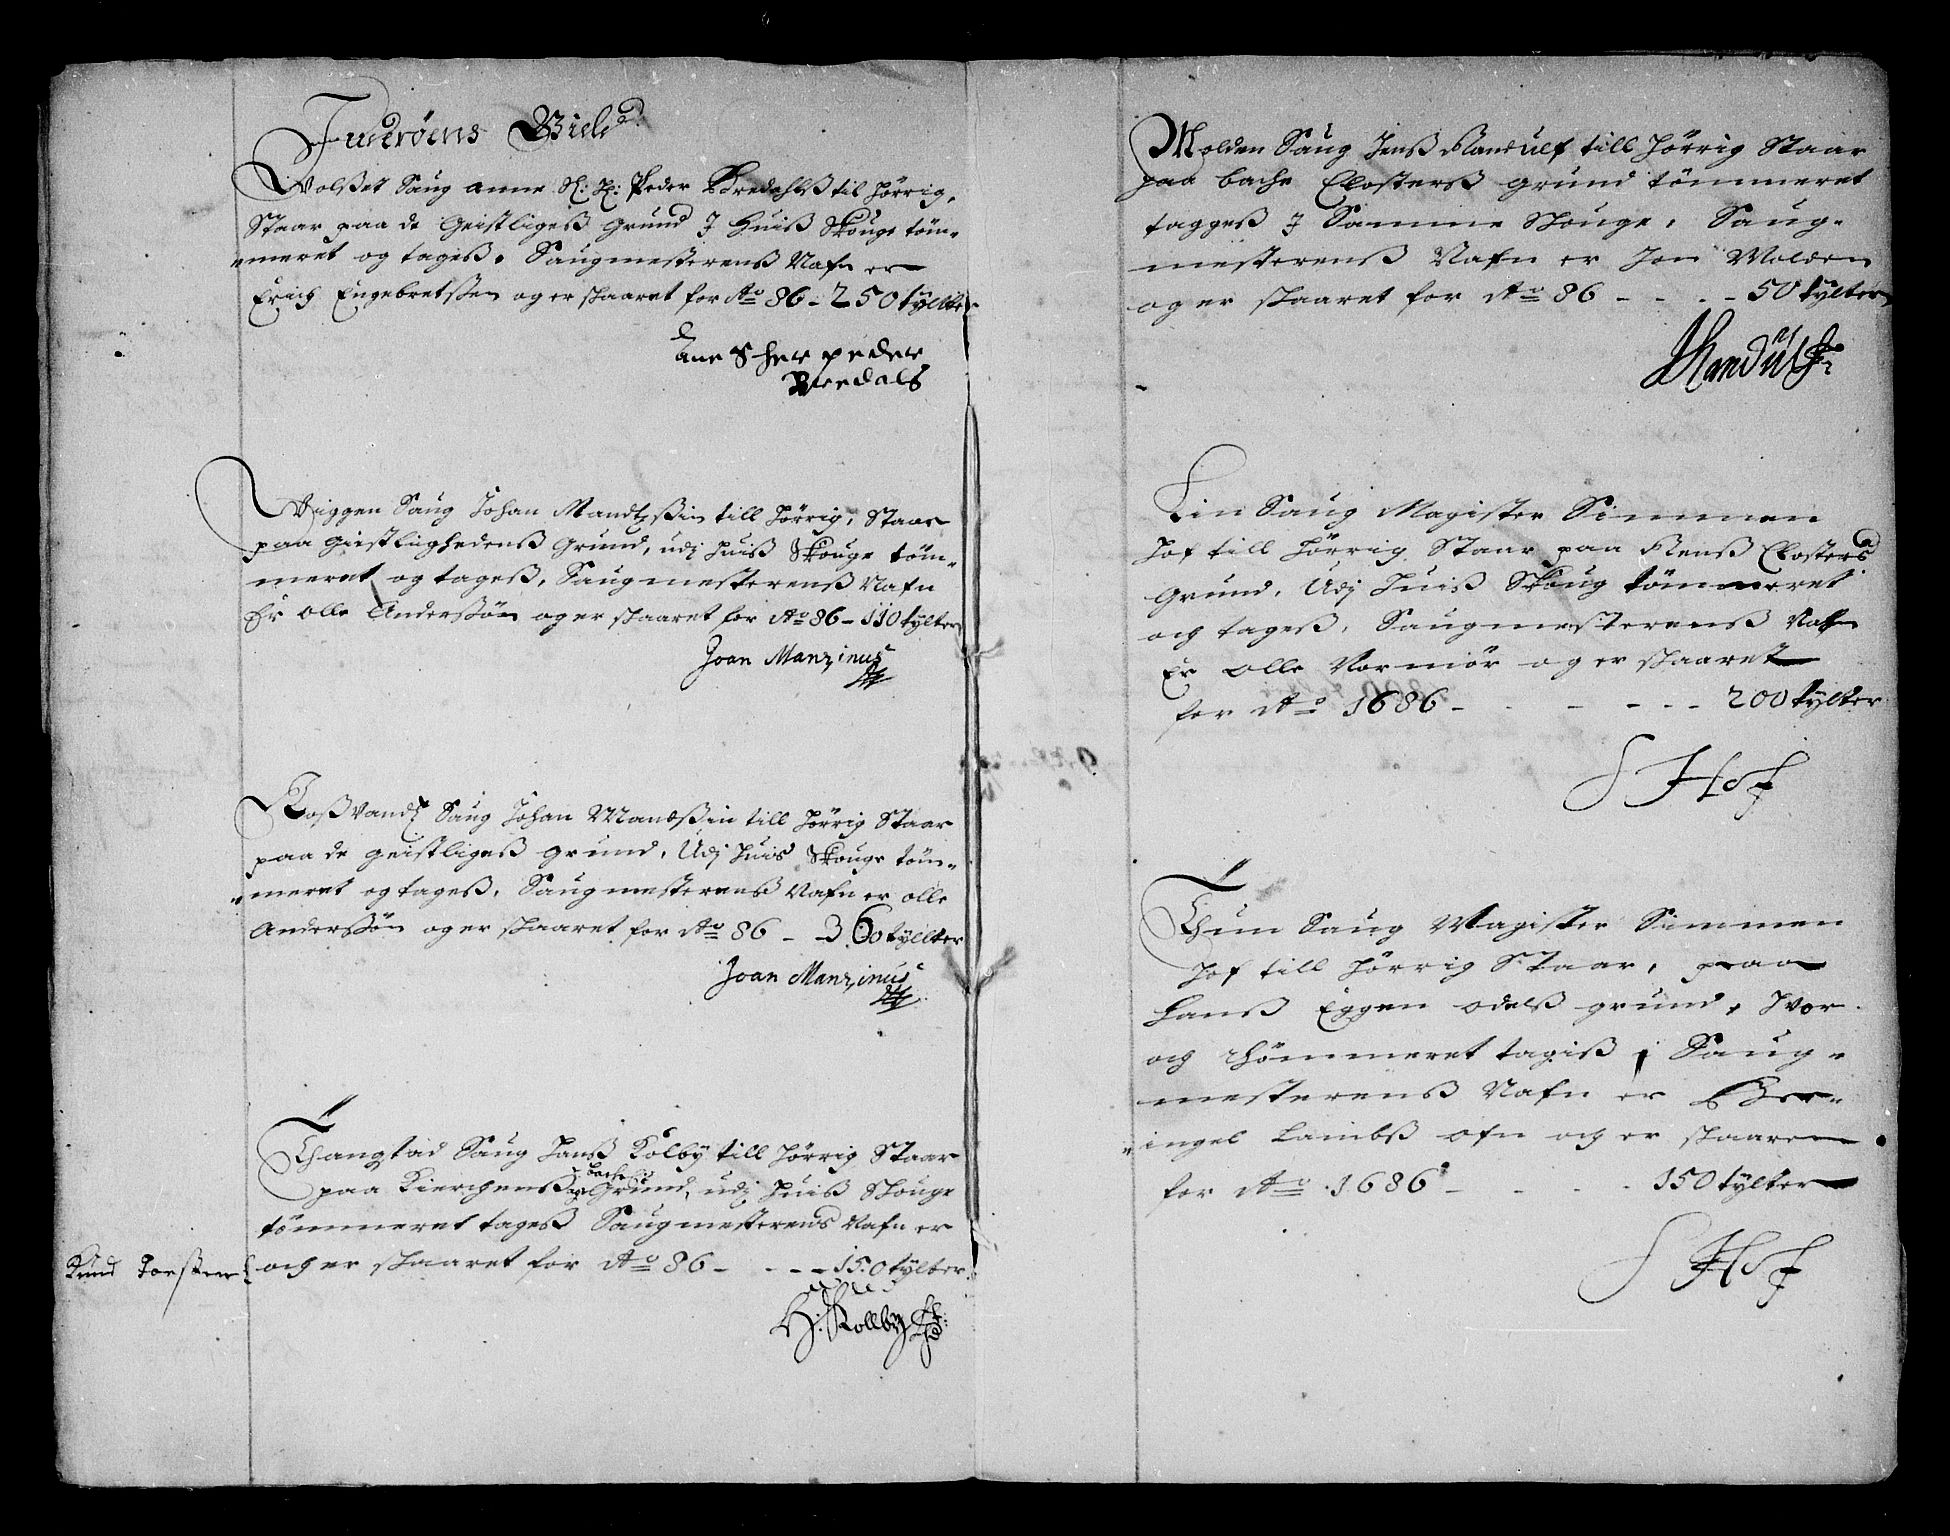 Inderöens Gield
Wolset Saug anne Sl: Hr: Peder Bredahlß til hörrig,
Staar paa de Geistligeß grund I huiß Skouge töm-
meret og tageß. Saugmesterenß Nafn er
Erich Engebretßen og er skaaret for Ao 86 - 250 tylter
Ane S her peder
Bredals
Wiggen Saug Johan Mandtzßin till hörrig, Staar
paa Giestlighedenß Grund, udj huiß Skouge töm-
meret og tageß, Saugmesterenß Nafn
Er olle Anderssön og er skaaret for Ao 86 - 110 tylter
Joan Manzinus
Saug Johan Mandßin till hörrig Staar
paa de geistligeß grund, Udj huis Skouge töm-
meret og tageß, Saugmesterenß Nafn er olle
Anderssön og er skaaret for Ao 86 - 360 tyllter
Joan Manzinus
Thangstad Saug Hanß Kolby till hörrig Staar
paa Kierchenß Bache Grund, udj huiß Skouge
tömmeret tageß Saugmesterens Nafn er
Knud Torsten
och er skaaret for Ao 86 - - - 150 tylter
H: Kollby
Molden Saug Jenß Randulf till hörrig Staar
paa bache Closterß grund tömmeret
taggeß I Samme Skouge, Saug-
mesterenß Nafn er Jon Molden
og er skaaret for Ao 86 - - - - 50 tylter
JRandulf
Lin Saug Magister Simmen
Hof till hörrig Staar paa Renß Closters
Grund, Udj huiß Skoug tömmeret
och tageß, Saugmesterenß Nafn
Er olle Vormör og er skaaret
for Ao 1686 - - - - - 200 tylter
S Hof
Thun Saug Magister Simmen
Hof till hörrig Staar, paa
Hanß Eggen odelß grund, Hvor
och thömmeret tagiß, Saug-
mesterenß Nafn er
ingel Lambß ofn och er skaaren
for Ao 1686 - - - - 150 tylter
S Hof